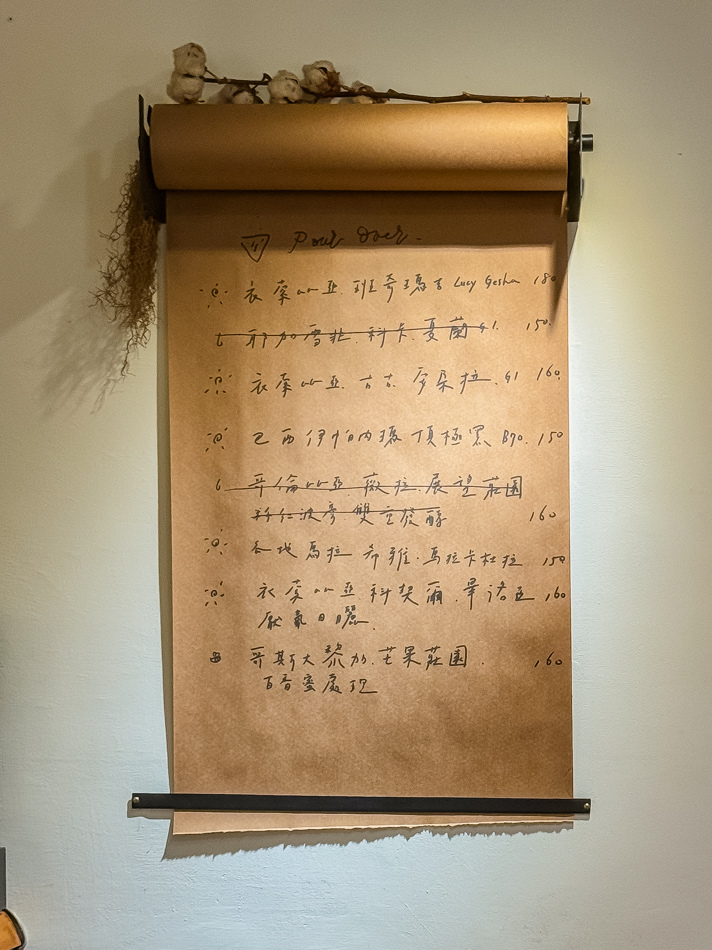 Pour Over.
衣索比亞. 班奇瑪吉 Lucy Gesha 180
耶加雪菲. 科卡. 夏蘭 G1. 150.
衣索比亞. 古吉. 罕貝拉. G1 160.
巴西 伊帕內瑪 頂極黑 B90. 150
哥倫比亞. 薇拉. 展望莊園
雙重發酵 160
瓜地馬拉 希維.馬拉卡杜拉 150
衣索比亞. 科契爾. 畢洛亞 160
厭氧日曬.
哥斯大黎加. 芒果莊園. 160
百香蜜處理